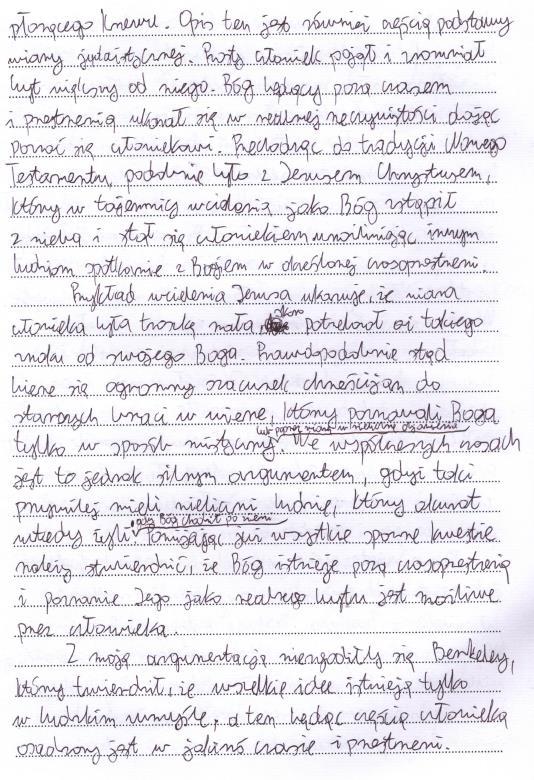 płonącego krzewu. Opis ten jest również częścią podstawy
wiary judaistycznej. Prosty człowiek pojął i zrozumiał
byt większy od niego. Bóg będący poza czasem
i przestrzenią ukazał się w realnej rzeczywistości dając
poznać się człowiekowi. Przechodząc do tradycji Nowego
Testamentu, podobnie było z Jezusem Chrystusem,
który w tajemnicy wcielenia jako Bóg zstąpił
z nieba i stał się człowiekiem umożliwiając innym
ludziom spotkanie z Bogiem w określonej czasoprzestrzeni.
Przykład wcielenia Jezusa ukazuje, że wiara
człowieka była troszkę mała, skoro potrzebował on takiego
znaku od swojego Boga. Prawdopodobnie stąd
bierze się ogromny szacunek chrześcijan do
starszych braci w wierze, którzy poznawali Boga
tylko w sposób mistyczny lub poprzez znaki w realnym działaniu. We współczesnych czasach
jest to jednak silnym argumentem, gdyż taki
przywilej mieli nieliczni ludzie, którzy akurat
wtedy żyli gdy Bóg chodził po ziemi. Pomijając już wszystkie sporne kwestie
należy stwierdzić, że Bóg istnieje poza czasoprzestrzenią
i poznanie Jego jako realnego bytu jest możliwe
przez człowieka.
Z moją argumentacją niezgodziłby się Berkeley,
który twierdził, że wszelkie idee istnieją tylko
w ludzkim umyśle, a ten będąc częścią człowieka
osadzony jest w jakimś czasie i przestrzeni.